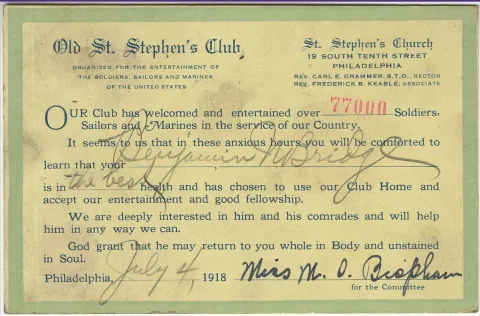 Old St. Stephen's Club
ORGANIZED FOR THE ENTERTAINMENT OF
THE SOLDIERS, SAILORS AND MARINES
OF THE UNITED STATES
St. Stephen's Church
19 SOUTH TENTH STREET
PHILADELPHIA
REV. CARL E. GRAMMER, S.T.D., RECTOR
REV. FREDERICK B. KEABLE, ASSOCIATE
OUR Club has welcomed and entertained over 77000 Soldiers,
Sailors and Marines in the service of our Country.
It seems to us that in these anxious hours you will be comforted to
learn that your Benjamin N Bridge
is in the best health and has chosen to use our Club Home and
accept our entertainment and good fellowship.
We are deeply interested in him and his comrades and will help
him in any way we can.
God grant that he may return to you whole in Body and unstained
in Soul.
Philadelphia, July 4, 1918 Miss M. O. Bispham
for the Committee